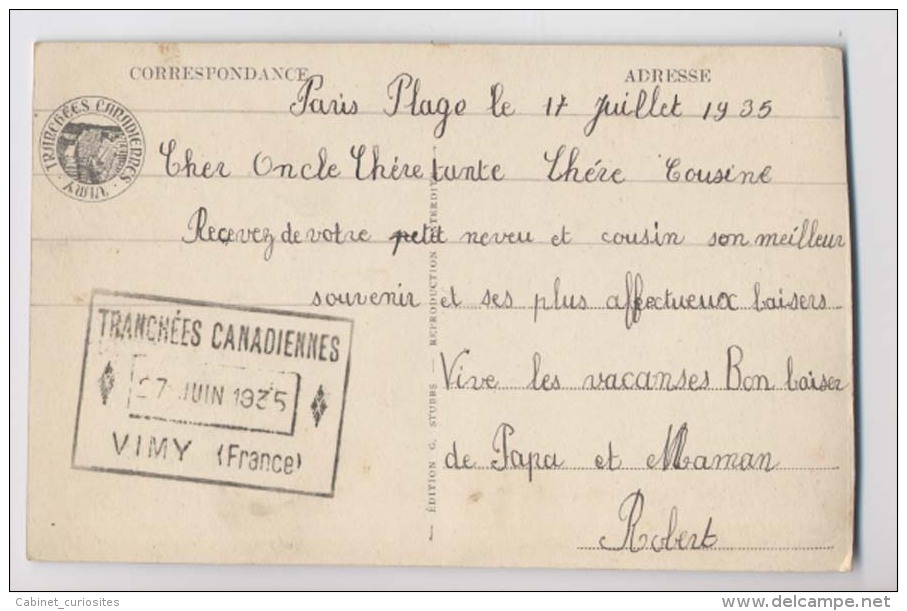 CORRESPONDANCE
ADRESSE
TRANCHÉES CANADIENNES · VIMY ·
Paris Plage le 17 Juillet 1935
Cher Oncle Chére tante Chére Cousine
Reçevez de votre petit neveu et cousin son meilleur
souvenir et ses plus affectueux baisers
Vive les vacanses Bon baiser
de Papa et Maman
Robert
TRANCHÉES CANADIENNES
27 JUIN 1935
VIMY (France)
— ÉDITION G. STUBBS — REPRODUCTION INTERDITE
Cabinet_curiosites
delcampe.net